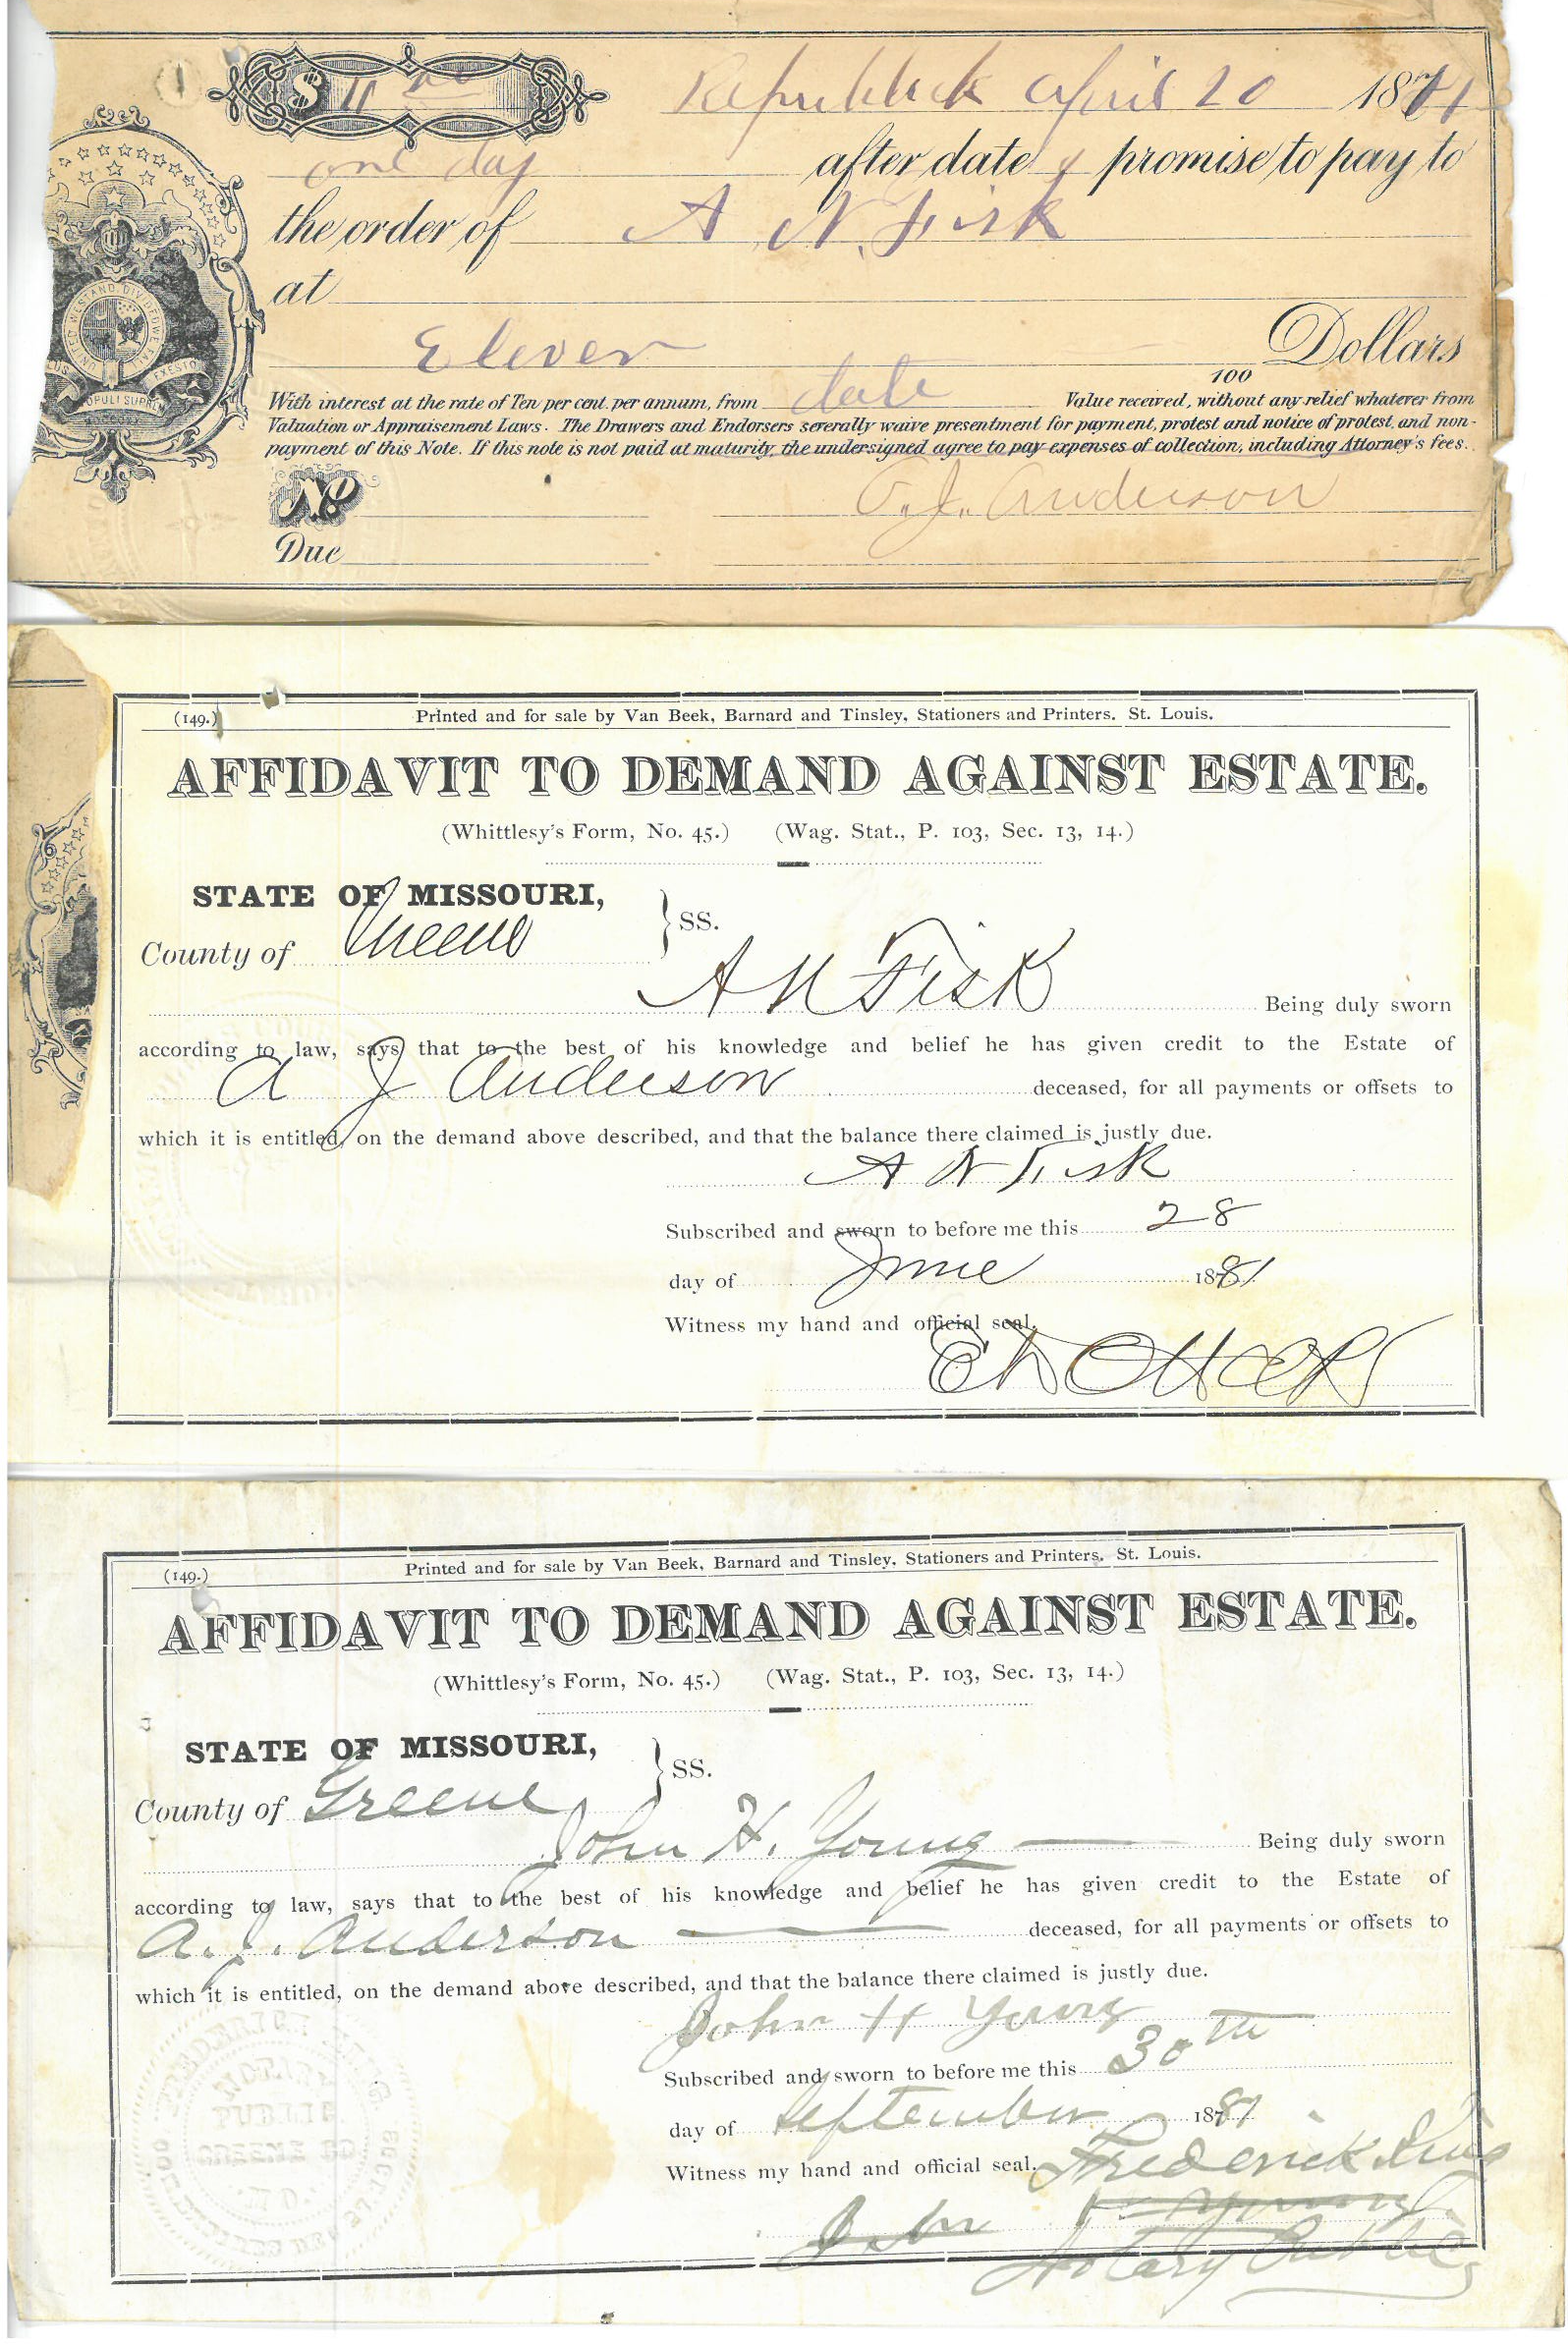 $ 11 00
Republick April 20 1881
one day after date I promise to pay to
the order of A N. Fisk
at
Eleven Dollars
100
With interest at the rate of Ten per cent. per annum, from date Value received, without any relief whatever from
Valuation or Appraisement Laws. The Drawers and Endorsers severally waive presentment for payment, protest and notice of protest, and non-
payment of this Note. If this note is not paid at maturity, the undersigned agree to pay expenses of collection, including Attorney's fees.
No A.J. Anderson
Due
UNITED WE STAND, DIVIDED WE FALL
(149.) Printed and for sale by Van Beek, Barnard and Tinsley, Stationers and Printers. St. Louis.
AFFIDAVIT TO DEMAND AGAINST ESTATE.
(Whittlesy's Form, No. 45.) (Wag. Stat., P. 103, Sec. 13, 14.)
STATE OF MISSOURI,
County of Greene } SS.
A N Fisk Being duly sworn
according to law, says that to the best of his knowledge and belief he has given credit to the Estate of
A J Anderson deceased, for all payments or offsets to
which it is entitled, on the demand above described, and that the balance there claimed is justly due.
A N Fisk
Subscribed and sworn to before me this 28
day of June 1881
Witness my hand and official seal.
(149.) Printed and for sale by Van Beek, Barnard and Tinsley, Stationers and Printers, St. Louis.
AFFIDAVIT TO DEMAND AGAINST ESTATE.
(Whittlesy's Form, No. 45.) (Wag. Stat., P. 103, Sec. 13, 14.)
STATE OF MISSOURI,
County of Greene } SS.
John H. Young Being duly sworn
according to law, says that to the best of his knowledge and belief he has given credit to the Estate of
A. J. Anderson deceased, for all payments or offsets to
which it is entitled, on the demand above described, and that the balance there claimed is justly due.
John H Young
Subscribed and sworn to before me this 30th
day of September 1881
Witness my hand and official seal. Frederick King
John Young
Notary Public
NOTARY
PUBLIC
GREENE CO
MO.